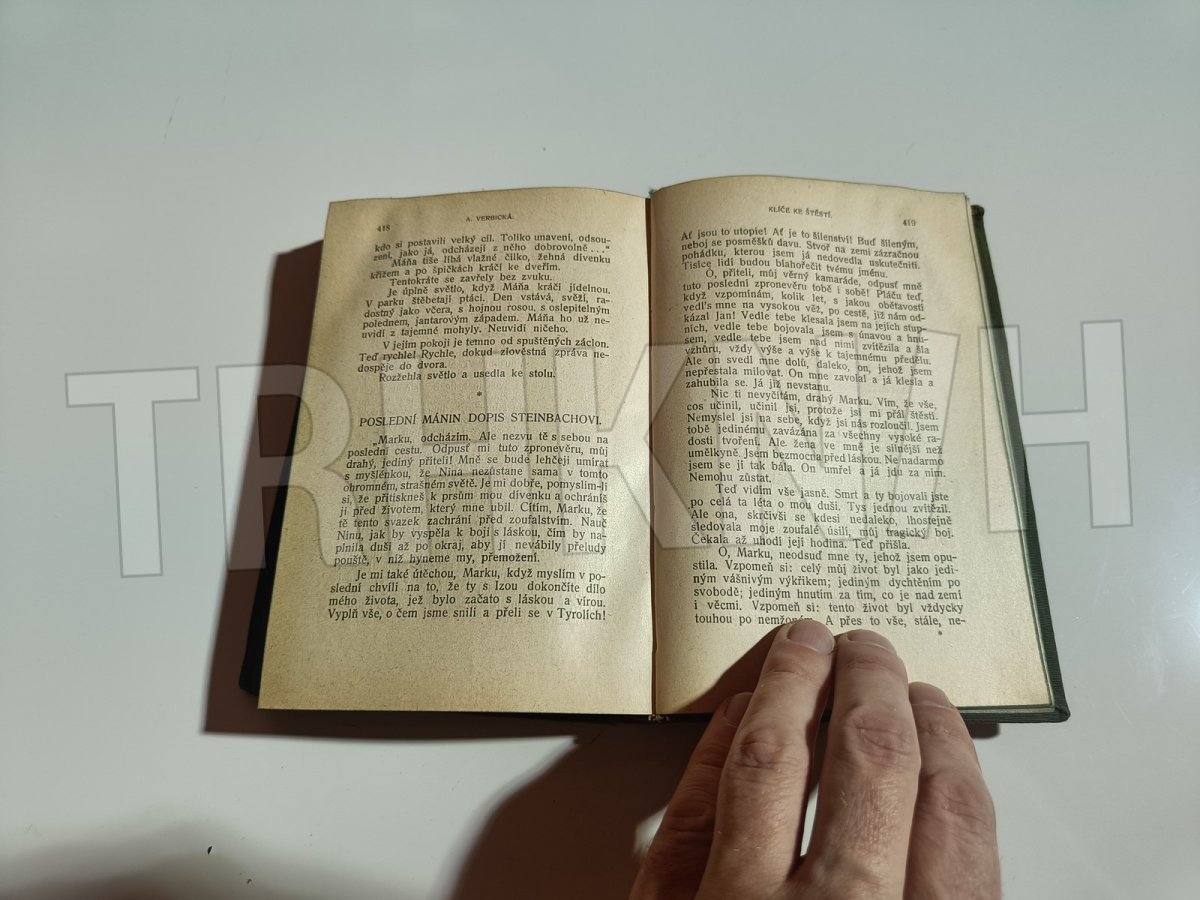 418
A. VERBICKÁ.
kdo si postavili velký cíl. Toliko unavení, odsou-
zení, jako já, odcházejí z něho dobrovolně . . .“
Máňa tiše líbá vlažné čílko, žehná dívenku
křížem a po špičkách kráčí ke dveřím.
Tentokráte se zavřely bez zvuku.
Je úplně světlo, když Máňa kráčí jídelnou.
V parku štěbetají ptáci. Den vstává, svěží, ra-
dostný jako včera, s hojnou rosou, s oslepitelným
polednem, jantarovým západem. Máňa ho už ne-
uvidí z tajemné mohyly. Neuvidí ničeho.
V jejím pokoji je temno od spuštěných záclon.
Teď rychle! Rychle, dokud zlověstná zpráva ne-
dospěje do dvora.
Rozžehla světlo a usedla ke stolu.
*
POSLEDNÍ MÁNIN DOPIS STEINBACHOVI.
„Marku, odcházím. Ale nezvu tě s sebou na
poslední cestu. Odpusť mi tuto zpronevěru, můj
drahý, jediný příteli! Mně se bude lehčeji umírat
s myšlénkou, že Nina nezůstane sama v tomto
ohromném, strašném světě. Je mi dobře, pomyslím-li
si, že přitiskneš k prsům mou dívenku a ochráníš
ji před životem, který mne ubil. Cítím, Marku, že
tě tento svazek zachrání před zoufalstvím. Nauč
Ninu, jak by vyspěla k boji s láskou, čím by na-
plnila duši až po okraj, aby jí nevábily přeludy
pouště, v níž hyneme my, přemožení.
Je mi také útěchou, Marku, když myslím v po-
slední chvíli na to, že ty s lzou dokončíte dílo
mého života, jež bylo začato s láskou a vírou.
Vyplň vše, o čem jsme snili a přeli se v Tyrolích!
KLÍČE KE ŠTĚSTÍ.
419
Ať jsou to utopie! Ať je to šílenství! Buď šíleným,
neboj se posměšků davu. Stvoř na zemi zázračnou
pohádku, kterou jsem já nedovedla uskutečniti.
Tisíce lidí budou blahořečit tvému jménu.
Ó, příteli, můj věrný kamaráde, odpusť mně
tuto poslední zpronevěru tobě i sobě! Pláču teď,
když vzpomínám, kolik let, s jakou obětavostí
vedl's mne na vysokou věž, po cestě, již nám od-
kázal Jan! Vedle tebe klesala jsem na jejích stup-
ních, vedle tebe bojovala jsem s únavou a hnů-
sem, vedle tebe jsem nad nimi zvítězila a šla
vzhůru, vždy výše a výše k tajemnému předělu.
Ale on svedl mne dolů, daleko, on, jehož jsem
nepřestala milovat. On mne zavolal a já klesla a
zahubila se. Já již nevstanu.
Nic ti nevyčítám, drahý Marku. Vím, že vše,
cos učinil, učinil jsi, protože jsi mi přál štěstí.
Nemyslel jsi na sebe, když jsi nás rozloučil. Jsem
tobě jedinému zavázána za všechny vysoké ra-
dosti tvoření. Ale žena ve mně je silnější než
umělkyně. Jsem bezmocna před láskou. Ne nadarmo
jsem se jí tak bála. On umřel a já jdu za ním.
Nemohu zůstat.
Teď vidím vše jasně. Smrt a ty bojovali jste
po celá ta léta o mou duši. Tys jednou zvítězil.
Ale ona, skrčivši se kdesi nedaleko, lhostejně
sledovala moje zoufalé úsilí, můj tragický boj.
Čekala až uhodí její hodina. Teď přišla.
Ó, Marku, neodsuď mne ty, jehož jsem opu-
stila. Vzpomeň si: celý můj život byl jako jedi-
ným vášnivým výkřikem; jediným dychtěním po
svobodě; jediným hnutím za tím, co je nad zemí
i věcmi. Vzpomeň si: tento život byl vždycky
touhou po nemžoném. A přes to vše, stále, ne-
*